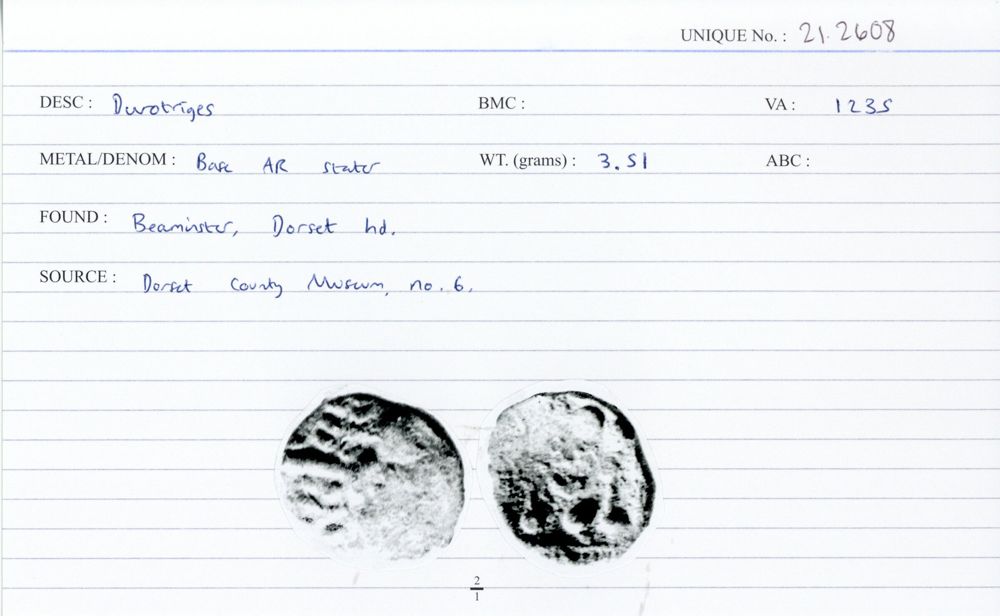 UNIQUE No. : 21.2608
DESC : Durotriges BMC : VA : 1235
METAL/DENOM : Base AR stater WT. (grams) : 3.51 ABC :
FOUND : Beaminster, Dorset hd.
SOURCE : Dorset County Museum, no. 6.
2
1